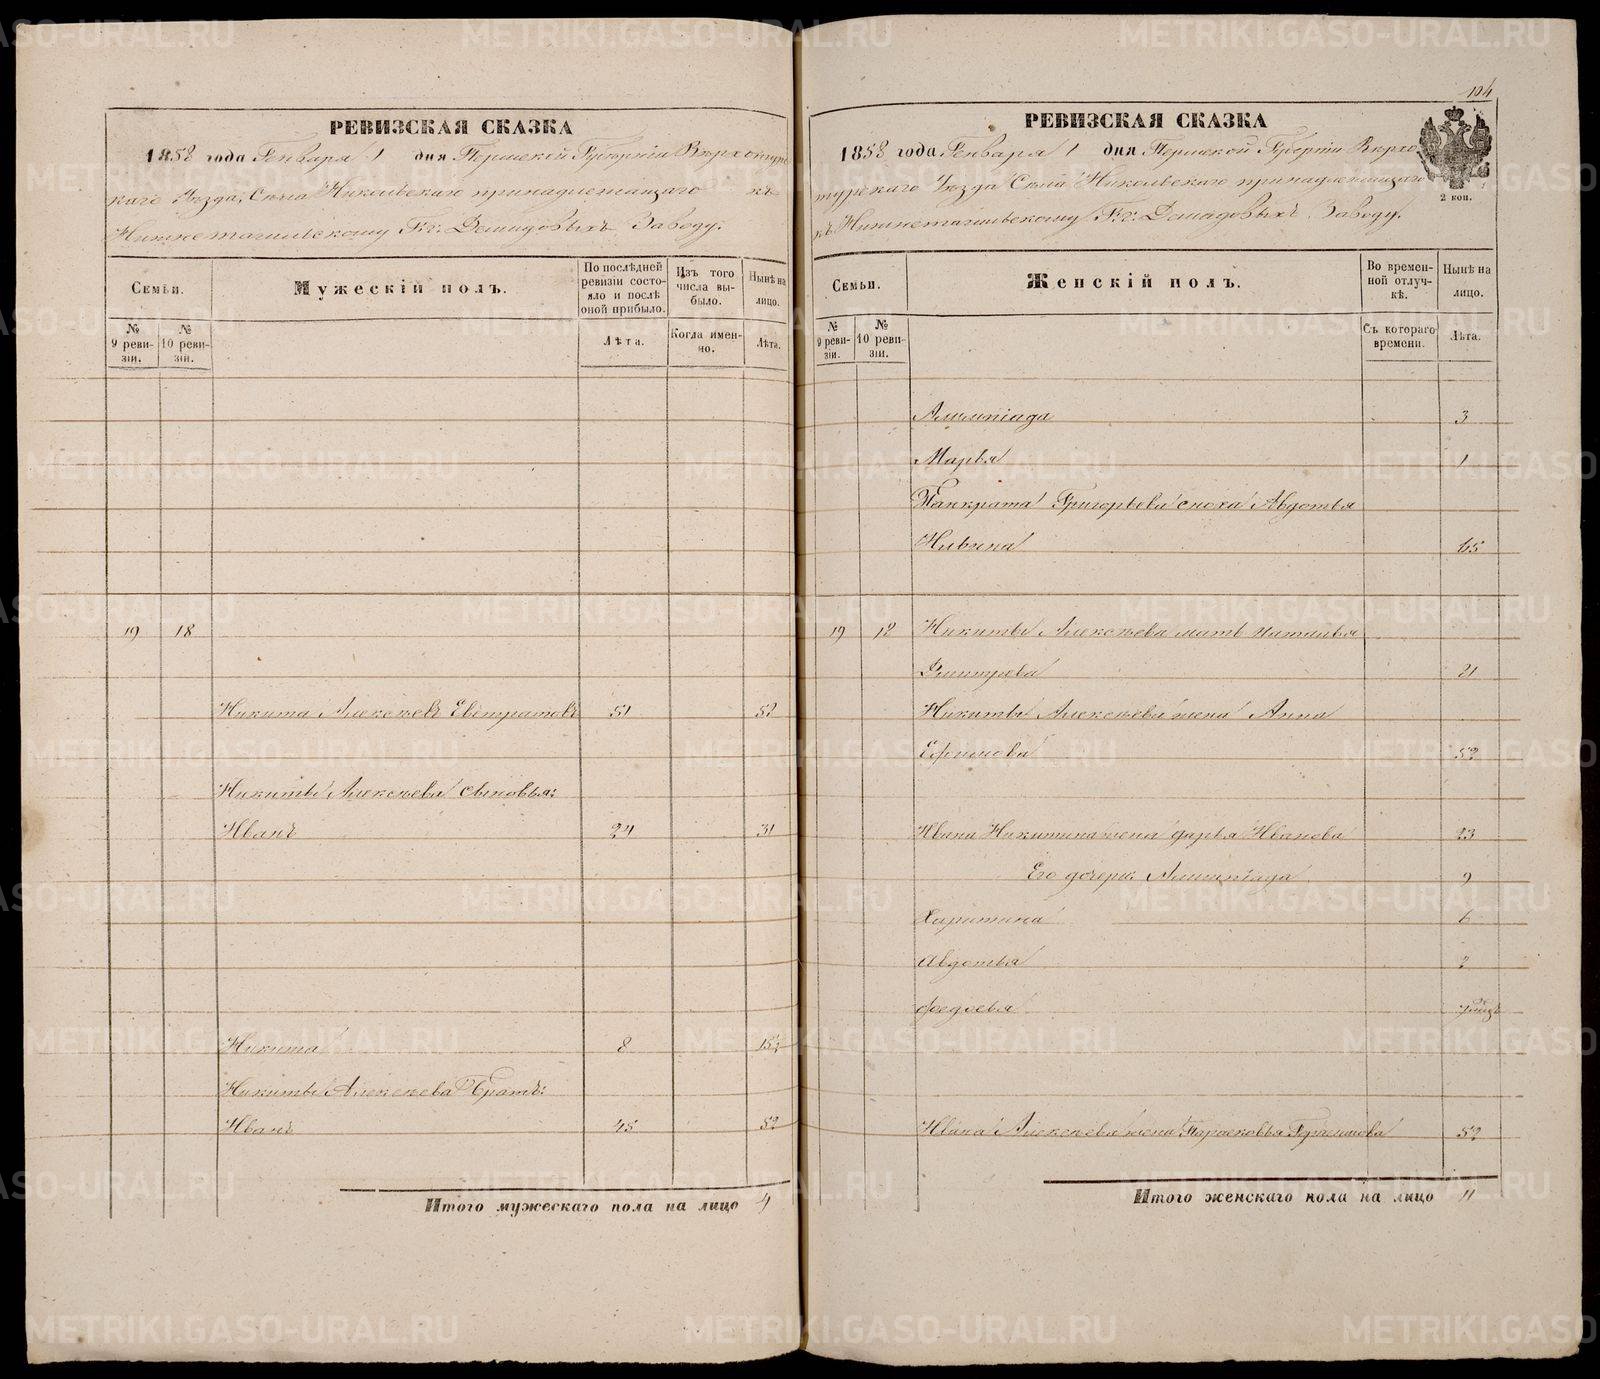 РЕВИЗСКАЯ СКАЗКА
1858 года Генваря 1 дня Пермской Губернiи Верхотурс
каго Уѣзда, Села Никольскаго принадлежащаго къ
Нижнетагильскому Гг. Демидовыхъ Заводу.
Семьи.
Мужескiй полъ.
По послѣдней ревизiи состояло и послѣ оной прибыло.
Изъ того числа выбыло.
Нынѣ на лицо.
№ 9 ревизiи.
№ 10 ревизiи.
Лѣта.
Когда именно.
Лѣта.
19 18
Никита Алексѣевъ Евстратовъ 51
Никиты Алексѣева сыновья:
Иванъ 24 31
Никита 8 15½
Никиты Алексѣева братъ:
Иванъ 45 52
Итого мужескаго пола на лицо 4
104
РЕВИЗСКАЯ СКАЗКА
1858 года Генваря 1 дня Пермской Губернiи Верхо
турскаго Уѣзда Села Никольскаго принадлежащаго
къ Нижнетагильскому Гг. Демидовыхъ Заводу.
2 коп.
Семьи.
Женскiй полъ.
Во временной отлучкѣ.
Нынѣ на лицо.
№ 9 ревизiи.
№ 10 ревизiи.
Съ котораго времени.
Лѣта.
Алимпiада 3
Марья 1
Панкрата Григорьева сноха Авдотья
19 Никиты Алексѣева мать Наталья
Дмитрева
Никиты Алексѣева жена Анна
Ефимова 52
Ивана Никитина жена Дарья Иванова
Его дочери: Алимпiада 9
Харитина 6
Авдотья 2
Федосья
Ивана Алексѣева жена Парасковья 52
Итого женскаго пола на лицо 11
METRIKI.GASO-URAL.RU